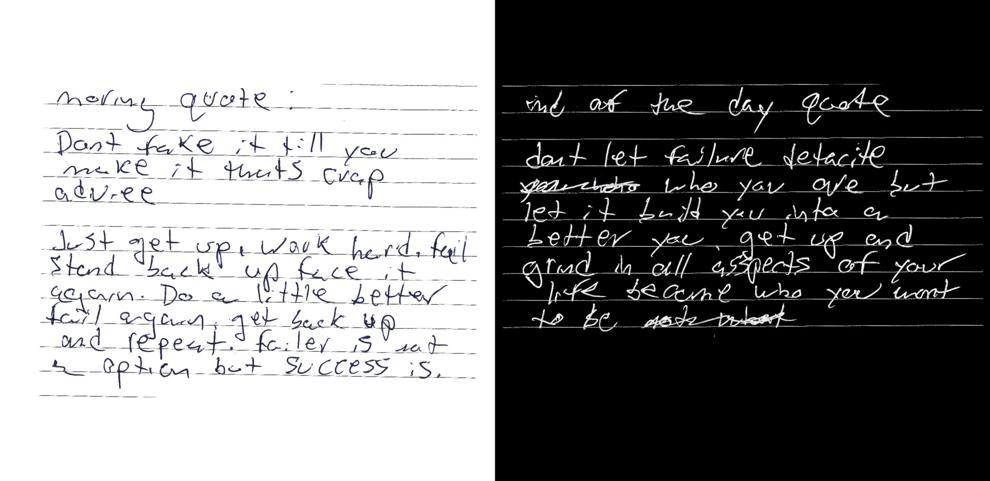 moring quote:
Dont fake it till you
make it thats crap
advice
Just get up, work hard, fail
stand back up face it
again. Do a little better
fail again, get back up
and repeat. failer is not
a option but success is.
end of the day quote
dont let failure detacite
who you are but
let it build you into a
better you, get up and
grind in all asspects of your
life become who you want
to be